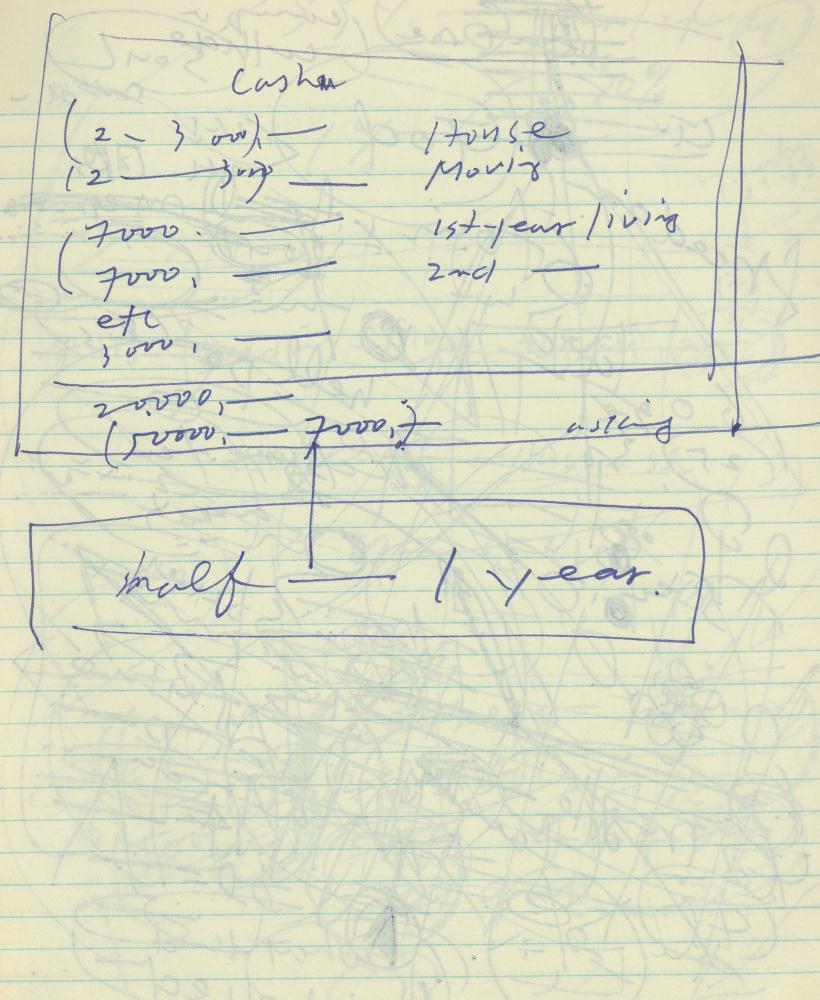 Cash
(2 - 3 000), — House
(2 — 3000) — Movin
7000. — 1st-year living
7000, — 2nd —
etc
3000, —
20000, —
(5000, — 7000,) asking
half — 1 year.